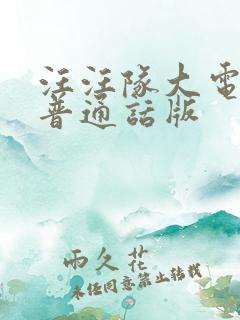 汪汪队大电
普通话版
雨久花
未经同意禁止转载